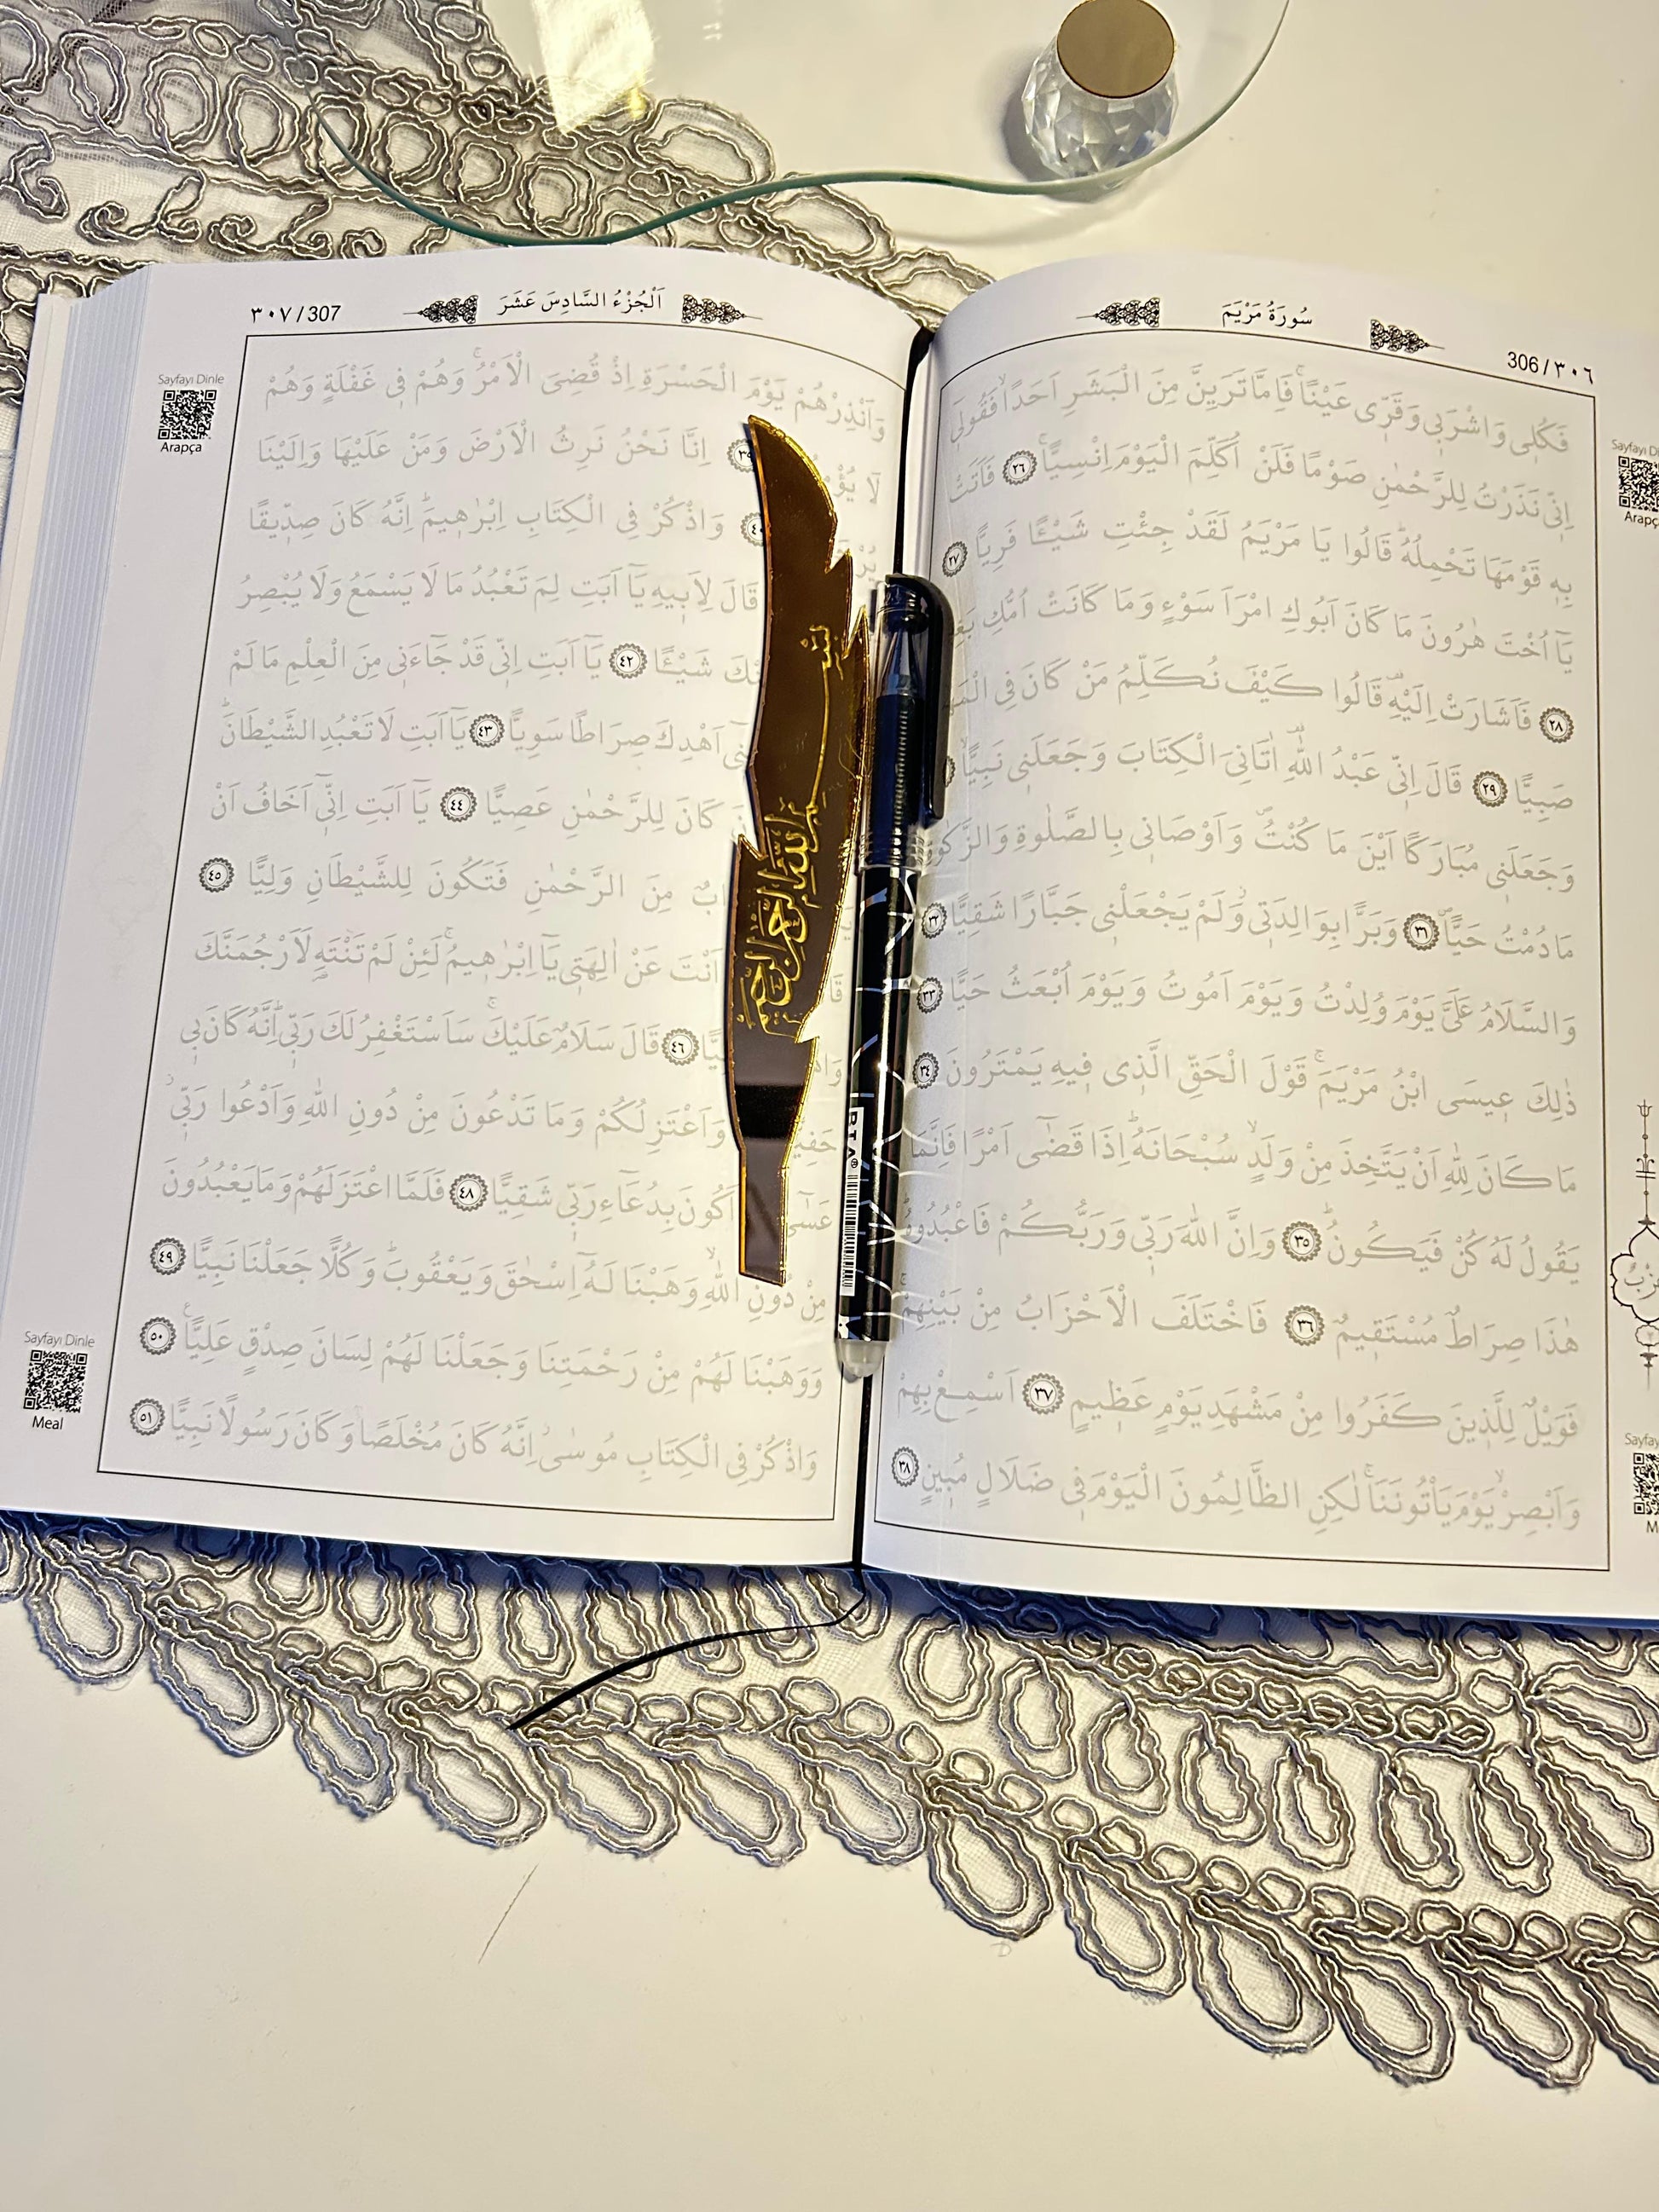 سُورَةُ مَرْيَمَ
306/٣٠٦
Arapça
فَكُلِى وَاشْرَبِى وَقَرِّى عَيْنًاۚ فَاِمَّا تَرَيِنَّ مِنَ الْبَشَرِ اَحَدًاۙ فَقُولِىٓ
اِنِّى نَذَرْتُ لِلرَّحْمٰنِ صَوْمًا فَلَنْ اُكَلِّمَ الْيَوْمَ اِنْسِيًّاۚ ٢٦ فَاَتَتْ
بِهٖ قَوْمَهَا تَحْمِلُهُۜ قَالُوا يَا مَرْيَمُ لَقَدْ جِئْتِ شَيْـًٔا فَرِيًّا ٢٧
يَٓا اُخْتَ هٰرُونَ مَا كَانَ اَبُوكِ امْرَاَ سَوْءٍ وَمَا كَانَتْ اُمُّكِ
٢٨ فَاَشَارَتْ اِلَيْهِۜ قَالُوا كَيْفَ نُكَلِّمُ مَنْ كَانَ فِى
صَبِيًّا ٢٩ قَالَ اِنِّى عَبْدُ اللّٰهِۜ اٰتَانِىَ الْكِتَابَ وَجَعَلَنِى نَبِيًّاۙ
وَجَعَلَنِى مُبَارَكًا اَيْنَ مَا كُنْتُۖ وَاَوْصَانِى بِالصَّلٰوةِ وَالزَّكٰوةِ
مَا دُمْتُ حَيًّاۖ ٣١ وَبَرًّا بِوَالِدَتِىۘ وَلَمْ يَجْعَلْنِى جَبَّارًا شَقِيًّا ٣٢
وَالسَّلَامُ عَلَىَّ يَوْمَ وُلِدْتُ وَيَوْمَ اَمُوتُ وَيَوْمَ اُبْعَثُ حَيًّا ٣٣
ذٰلِكَ عِيسَى ابْنُ مَرْيَمَۚ قَوْلَ الْحَقِّ الَّذِى فِيهِ يَمْتَرُونَ ٣٤
مَا كَانَ لِلّٰهِ اَنْ يَتَّخِذَ مِنْ وَلَدٍۙ سُبْحَانَهُۜ اِذَا قَضٰٓى اَمْرًا فَاِنَّمَا
يَقُولُ لَهُ كُنْ فَيَكُونُۜ ٣٥ وَاِنَّ اللّٰهَ رَبِّى وَرَبُّكُمْ فَاعْبُدُوهُۜ
هٰذَا صِرَاطٌ مُسْتَقِيمٌ ٣٦ فَاخْتَلَفَ الْاَحْزَابُ مِنْ بَيْنِهِمْۚ
فَوَيْلٌ لِلَّذِينَ كَفَرُوا مِنْ مَشْهَدِ يَوْمٍ عَظِيمٍ ٣٧ اَسْمِعْ بِهِمْ
وَاَبْصِرْۙ يَوْمَ يَأْتُونَنَاۚ لٰكِنِ الظَّالِمُونَ الْيَوْمَ فِى ضَلَالٍ مُبِينٍ ٣٨
٣٠٧/307
اَلْجُزْءُ السَّادِسَ عَشَرَ
Sayfayı Dinle
Arapça
وَاَنْذِرْهُمْ يَوْمَ الْحَسْرَةِ اِذْ قُضِىَ الْاَمْرُۚ وَهُمْ فِى غَفْلَةٍ وَهُمْ
لَا ٣٩ اِنَّا نَحْنُ نَرِثُ الْاَرْضَ وَمَنْ عَلَيْهَا وَاِلَيْنَا
وَاذْكُرْ فِى الْكِتَابِ اِبْرٰهِيمَۜ اِنَّهُ كَانَ صِدِّيقًا
قَالَ لِاَبِيهِ يَٓا اَبَتِ لِمَ تَعْبُدُ مَا لَا يَسْمَعُ وَلَا يُبْصِرُ
شَيْـًٔا ٤٢ يَٓا اَبَتِ اِنِّى قَدْ جَٓاءَنِى مِنَ الْعِلْمِ مَا لَمْ
اَهْدِكَ صِرَاطًا سَوِيًّا ٤٣ يَٓا اَبَتِ لَا تَعْبُدِ الشَّيْطَانَۜ
كَانَ لِلرَّحْمٰنِ عَصِيًّا ٤٤ يَٓا اَبَتِ اِنِّٓى اَخَافُ اَنْ
مِنَ الرَّحْمٰنِ فَتَكُونَ لِلشَّيْطَانِ وَلِيًّا ٤٥
اَنْتَ عَنْ اٰلِهَتِى يَٓا اِبْرٰهِيمُۚ لَئِنْ لَمْ تَنْتَهِ لَاَرْجُمَنَّكَ
٤٦ قَالَ سَلَامٌ عَلَيْكَۚ سَاَسْتَغْفِرُ لَكَ رَبِّىۜ اِنَّهُ كَانَ بِى
وَاَعْتَزِلُكُمْ وَمَا تَدْعُونَ مِنْ دُونِ اللّٰهِ وَاَدْعُوا رَبِّىۘ
عَسٰٓى اَكُونَ بِدُعَٓاءِ رَبِّى شَقِيًّا ٤٨ فَلَمَّا اعْتَزَلَهُمْ وَمَا يَعْبُدُونَ
مِنْ دُونِ اللّٰهِۙ وَهَبْنَا لَهُٓ اِسْحٰقَ وَيَعْقُوبَۜ وَكُلًّا جَعَلْنَا نَبِيًّا ٤٩
وَوَهَبْنَا لَهُمْ مِنْ رَحْمَتِنَا وَجَعَلْنَا لَهُمْ لِسَانَ صِدْقٍ عَلِيًّا ٥٠
وَاذْكُرْ فِى الْكِتَابِ مُوسٰىۘ اِنَّهُ كَانَ مُخْلَصًا وَكَانَ رَسُولًا نَبِيًّا ٥١
Sayfayı Dinle
Meal
بسم الله الرحمن الرحيم